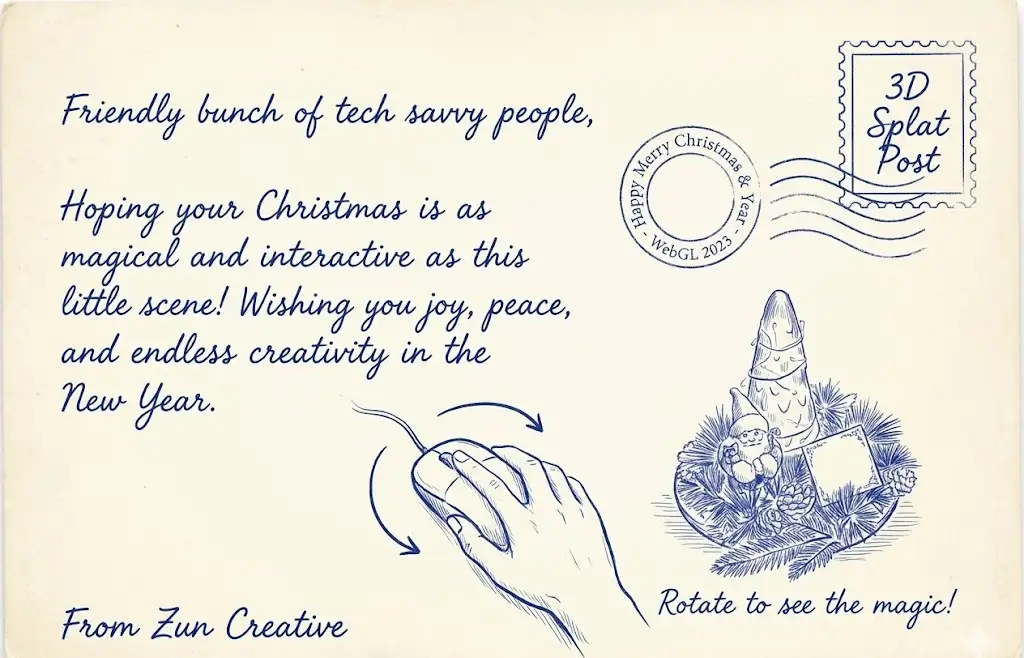 Friendly bunch of tech savvy people,
Hoping your Christmas is as
magical and interactive as this
little scene! Wishing you joy, peace,
and endless creativity in the
New Year.
From Zun Creative
Happy Merry Christmas & Year - WebGL 2023 -
3D
Splat
Post
Rotate to see the magic!